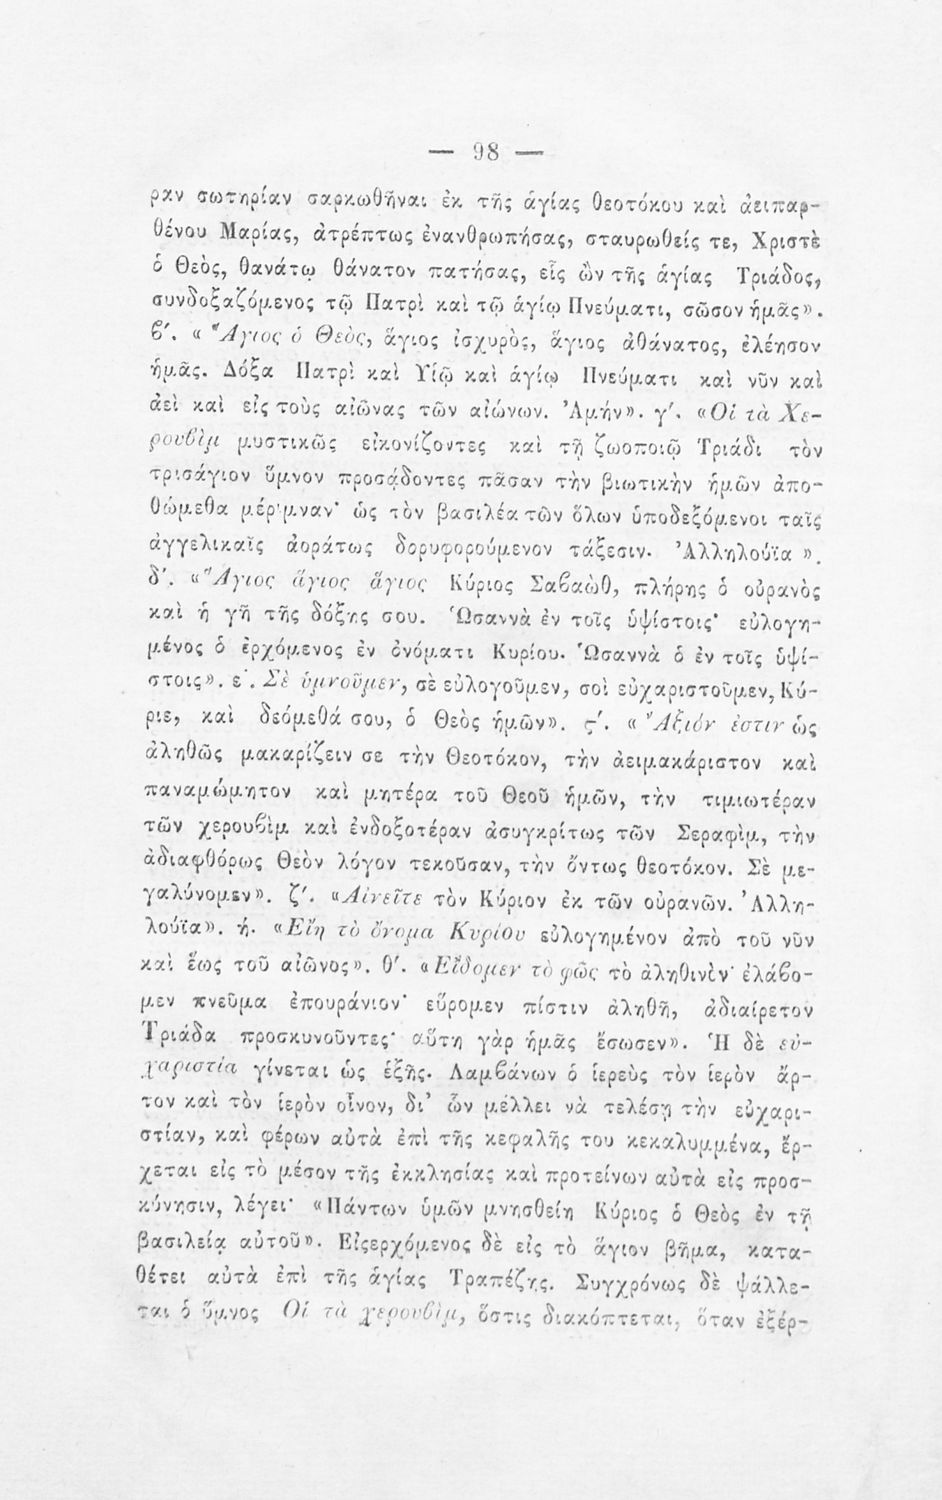 — 98 —
ραν σωτηρίαν σαρκωθῆναι ἐκ τῆς ἁγίας θεοτόκου καὶ ἀειπαρ-
θένου Μαρίας, ἀτρέπτως ἐνανθρωπήσας, σταυρωθείς τε, Χριστὲ
ὁ Θεὸς, θανάτῳ θάνατον πατήσας, εἷς ὢν τῆς ἁγίας Τριάδος,
συνδοξαζόμενος τῷ Πατρὶ καὶ τῷ ἁγίῳ Πνεύματι, σῶσον ἡμᾶς».
ϐ′. « Ἅγιος ὁ Θεὸς, ἅγιος ἰσχυρὸς, ἅγιος ἀθάνατος, ἐλέησον
ἡμᾶς. Δόξα Πατρὶ καὶ Υἱῷ καὶ ἁγίῳ Πνεύματι καὶ νῦν καὶ
ἀεὶ καὶ εἰς τοὺς αἰῶνας τῶν αἰώνων. Ἀμήν». γ′. «Οἱ τὰ Χε-
ρουϐὶμ μυστικῶς εἰκονίζοντες καὶ τῇ ζωοποιῷ Τριάδι τὸν
τρισάγιον ὕμνον προσᾴδοντες πᾶσαν τὴν βιωτικὴν ἡμῶν ἀπο-
θώμεθα μέριμναν· ὡς τὸν βασιλέα τῶν ὅλων ὑποδεξόμενοι ταῖς
ἀγγελικαῖς ἀοράτως δορυφορούμενον τάξεσιν. Ἀλληλούϊα ».
δ′. «Ἅγιος ἅγιος ἅγιος Κύριος Σαϐαὼθ, πλήρης ὁ οὐρανὸς
καὶ ἡ γῆ τῆς δόξης σου. Ὡσαννὰ ἐν τοῖς ὑψίστοις· εὐλογη-
μένος ὁ ἐρχόμενος ἐν ὀνόματι Κυρίου. Ὡσαννὰ ὁ ἐν τοῖς ὑψί-
στοις». ε′. Σὲ ὑμνοῦμεν, σὲ εὐλογοῦμεν, σοὶ εὐχαριστοῦμεν, Κύ-
ριε, καὶ δεόμεθά σου, ὁ Θεὸς ἡμῶν». ϛ′. « Ἄξιόν ἐστιν ὡς
ἀληθῶς μακαρίζειν σε τὴν Θεοτόκον, τὴν ἀειμακάριστον καὶ
παναμώμητον καὶ μητέρα τοῦ Θεοῦ ἡμῶν, τὴν τιμιωτέραν
τῶν χερουϐὶμ καὶ ἐνδοξοτέραν ἀσυγκρίτως τῶν Σεραφὶμ, τὴν
ἀδιαφθόρως Θεὸν λόγον τεκοῦσαν, τὴν ὄντως θεοτόκον. Σὲ με-
γαλύνομεν». ζ′. «Αἰνεῖτε τὸν Κύριον ἐκ τῶν οὐρανῶν. Ἀλλη-
λούϊα». ή. «Εἴη τὸ ὄνομα Κυρίου εὐλογημένον ἀπὸ τοῦ νῦν
καὶ ἕως τοῦ αἰῶνος». θ′. «Εἴδομεν τὸ φῶς τὸ ἀληθινὸν· ἐλάϐο-
μεν πνεῦμα ἐπουράνιον· εὕρομεν πίστιν ἀληθῆ, ἀδιαίρετον
Τριάδα προσκυνοῦντες· αὕτη γὰρ ἡμᾶς ἔσωσεν». Ἡ δὲ εὐ-
χαριστία γίνεται ὡς ἑξῆς. Λαμϐάνων ὁ ἱερεὺς τὸν ἱερὸν ἄρ-
τον καὶ τὸν ἱερὸν οἶνον, δι’ ὧν μέλλει νὰ τελέσῃ τὴν εὐχαρι-
στίαν, καὶ φέρων αὐτὰ ἐπὶ τῆς κεφαλῆς του κεκαλυμμένα, ἔρ-
χεται εἰς τὸ μέσον τῆς ἐκκλησίας καὶ προτείνων αὐτὰ εἰς προσ-
κύνησιν, λέγει· «Πάντων ὑμῶν μνησθείη Κύριος ὁ Θεὸς ἐν τῇ
βασιλείᾳ αὐτοῦ». Εἰςερχόμενος δὲ εἰς τὸ ἅγιον βῆμα, κατα-
θέτει αὐτὰ ἐπὶ τῆς ἁγίας Τραπέζης. Συγχρόνως δὲ ψάλλε-
ται ὁ ὕμνος Οἱ τὰ χερουϐὶμ, ὅστις διακόπτεται, ὅταν ἐξέρ-